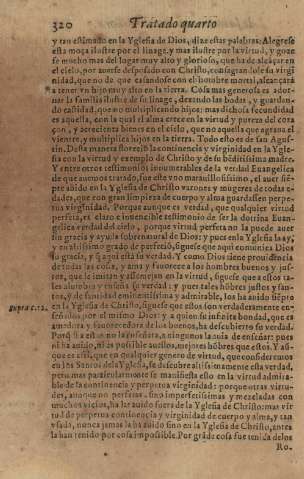 320 Tratado quarto
y tan estimado en la Yglesia de Dios, dize estas palabras: Alegrese
esta moça ilustre por el linage, y mas ilustre por la virtud, y goze
se mucho mas del lugar muy alto y glorioso, que ha de alcāçar en
el cielo, por auerse desposado con Christo, consagrandole su virgi
nidad, que no de que casandose con el hombre mortal, alcançarà
a tener vn hijo muy alto en la tierra. Cosa mas generosa es ador-
nar la familia ilustre de su linage, dexando las bodas, y guardan-
do castidad, que no multiplicando hijos: mas dichosa fecundidad
es aquella, con la qual el alma crece en la virtud y pureza del cora
çon, y acrecienta bienes en el cielo, que no aquella que agraua el
vientre, y multiplica hijos en la tierra. Todo esto es de san Agus-
tin. Desta manera florecio la continencia y virginidad en la Ygle-
sia con la virtud y exemplo de Christo y de su bēditissima madre.
Y entre otros testimonios innumerables de la verdad Euangelica
de que auemos tratado, fue este vno marauillosissimo, el auer siē-
pre auido en la Yglesia de Christo varones y mugeres de todas e-
dades, que con gran limpieza de cuerpo y alma guardassen perpe-
tua virginidad. Porque aunque es verdad, que qualquier virtud
perfeta, es claro e inuencible testimonio de ser la dotrina Euan-
gelica verdad del cielo, porque virtud perfeta no la puede auer
sin gracia y ayuda sobrenatural de Dios: y pues en Yglesia la ay,
y en altissimo grado de perfeciō, siguese que aqui comunica Dios
su gracia, y q̄ aqui està su verdad. Y como Dios tiene prouidēcia
de todas las cosas, y ama y fauorece a los hombres buenos y jus-
tos, que le imitan y assemejan en la virtud, siguese que a estos ta-
les alumbra y enseña su verdad: y pues tales hōbres justos y san-
tos, y de santidad eminentissima y admirable, los ha auido siēpre
Supra c. 12. en la Yglesia de Christo, siguese que ellos son verdaderamente en-
señados por el mismo Dios: y a quien su infinita bondad, que es
amadora y fauorecedora de los buenos, ha descubierto su verdad.
Porq̄ si a ellos no la enseñara, a ningunos la auia de enseñar: pues
ni ha auido, ni es possible auellos, mejores hōbres que estos. Y aū-
que es assi, que en qualquier genero de virtud, que consideremos
en los Santos de la Yglesia, se descubre altissimamente esta verdad,
pero mas particularmente se manifiesta esto en la virtud admira-
ble de la continencia y perpetua virginidad: porque otras virtu-
des, aunque no perfetas, sino imperfectissimas y mezcladas con
muchos vicios, ha auido fuera de la Yglesia de Christo: mas vir
tud de perpetua continencia y virginidad de cuerpo y alma, y tan
vsada, nunca jamas la ha auido sino en la Yglesia de Christo, antes
la han tenido por cosa impossible. Por grāde cosa fue tenida de los
Ro.